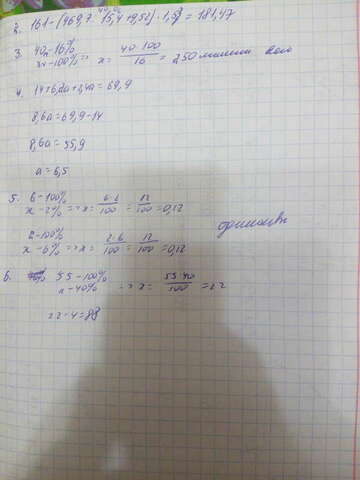 2. 161-(469,7:15,4+9,52)·1,5 = 181,47
3. 40м-16%
x-100% => x = 40·100/16 = 250
4. 14+6,2a+2,4a=69,9
8,6a=69,9-14
8,6a=55,9
a=6,5
5. 6-100%
x-2% => x = 6·2/100 = 12/100 = 0,12
2-100%
x-6% => x = 2·6/100 = 12/100 = 0,12
6. 55-100%
x-40% => x = 55·40/100 = 22
22·4=88